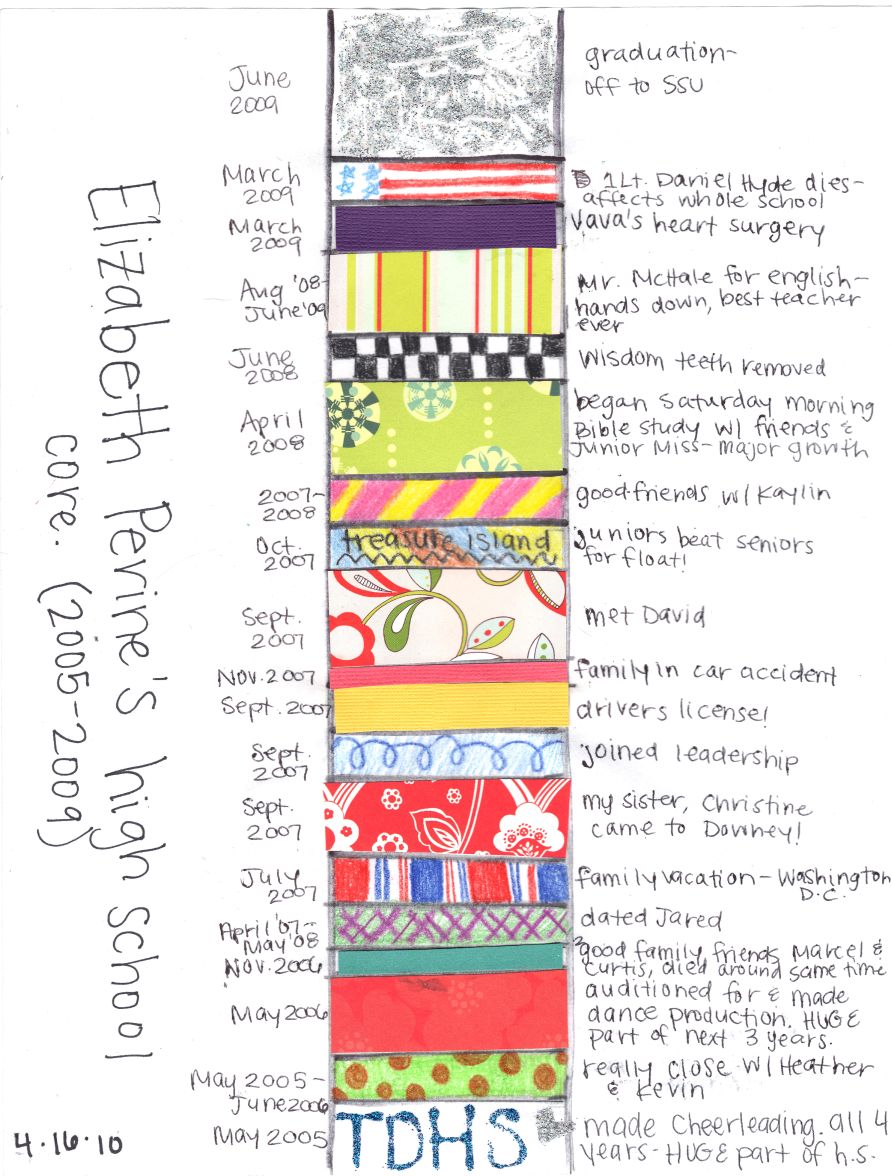 June
2009
graduation-
off to SSU
March
2009
1Lt. Daniel Hyde dies-
affects whole school
March
2009
Vava's heart surgery
Aug '08-
June '09
Mr. McHale for english-
hands down, best teacher
ever
June
2008
wisdom teeth removed
April
2008
began Saturday morning
Bible study w/ friends &
Junior Miss-major growth
2007-
2008
good friends w/ Kaylin
Oct.
2007
treasure island
juniors beat seniors
for float!
Sept.
2007
met David
Nov. 2007
family in car accident
Sept. 2007
drivers license!
Sept.
2007
joined leadership
Sept.
2007
my sister, Christine
came to Downey!
July
2007
family vacation - Washington
D.C.
April '07-
May '08
dated Jared
Nov. 2006
good family friends, Marcel &
Curtis, died around same time
May 2006
auditioned for & made
dance production. HUGE
part of next 3 years.
May 2005-
June 2006
really close w/ Heather
& Kevin
May 2005
TDHS
made Cheerleading. all 4
years-HUGE part of h.s.
Elizabeth Perine's high school
core. (2005-2009)
4.16.10